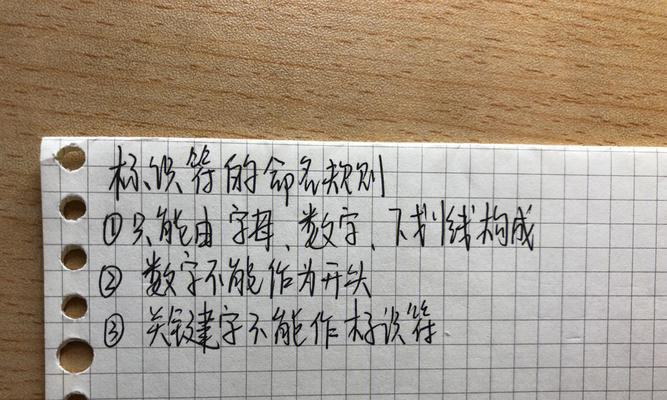 标识符的命名规则
①只能由字母、数字、下划线构成
②数字不能作为开头
③关键字不能作标识符